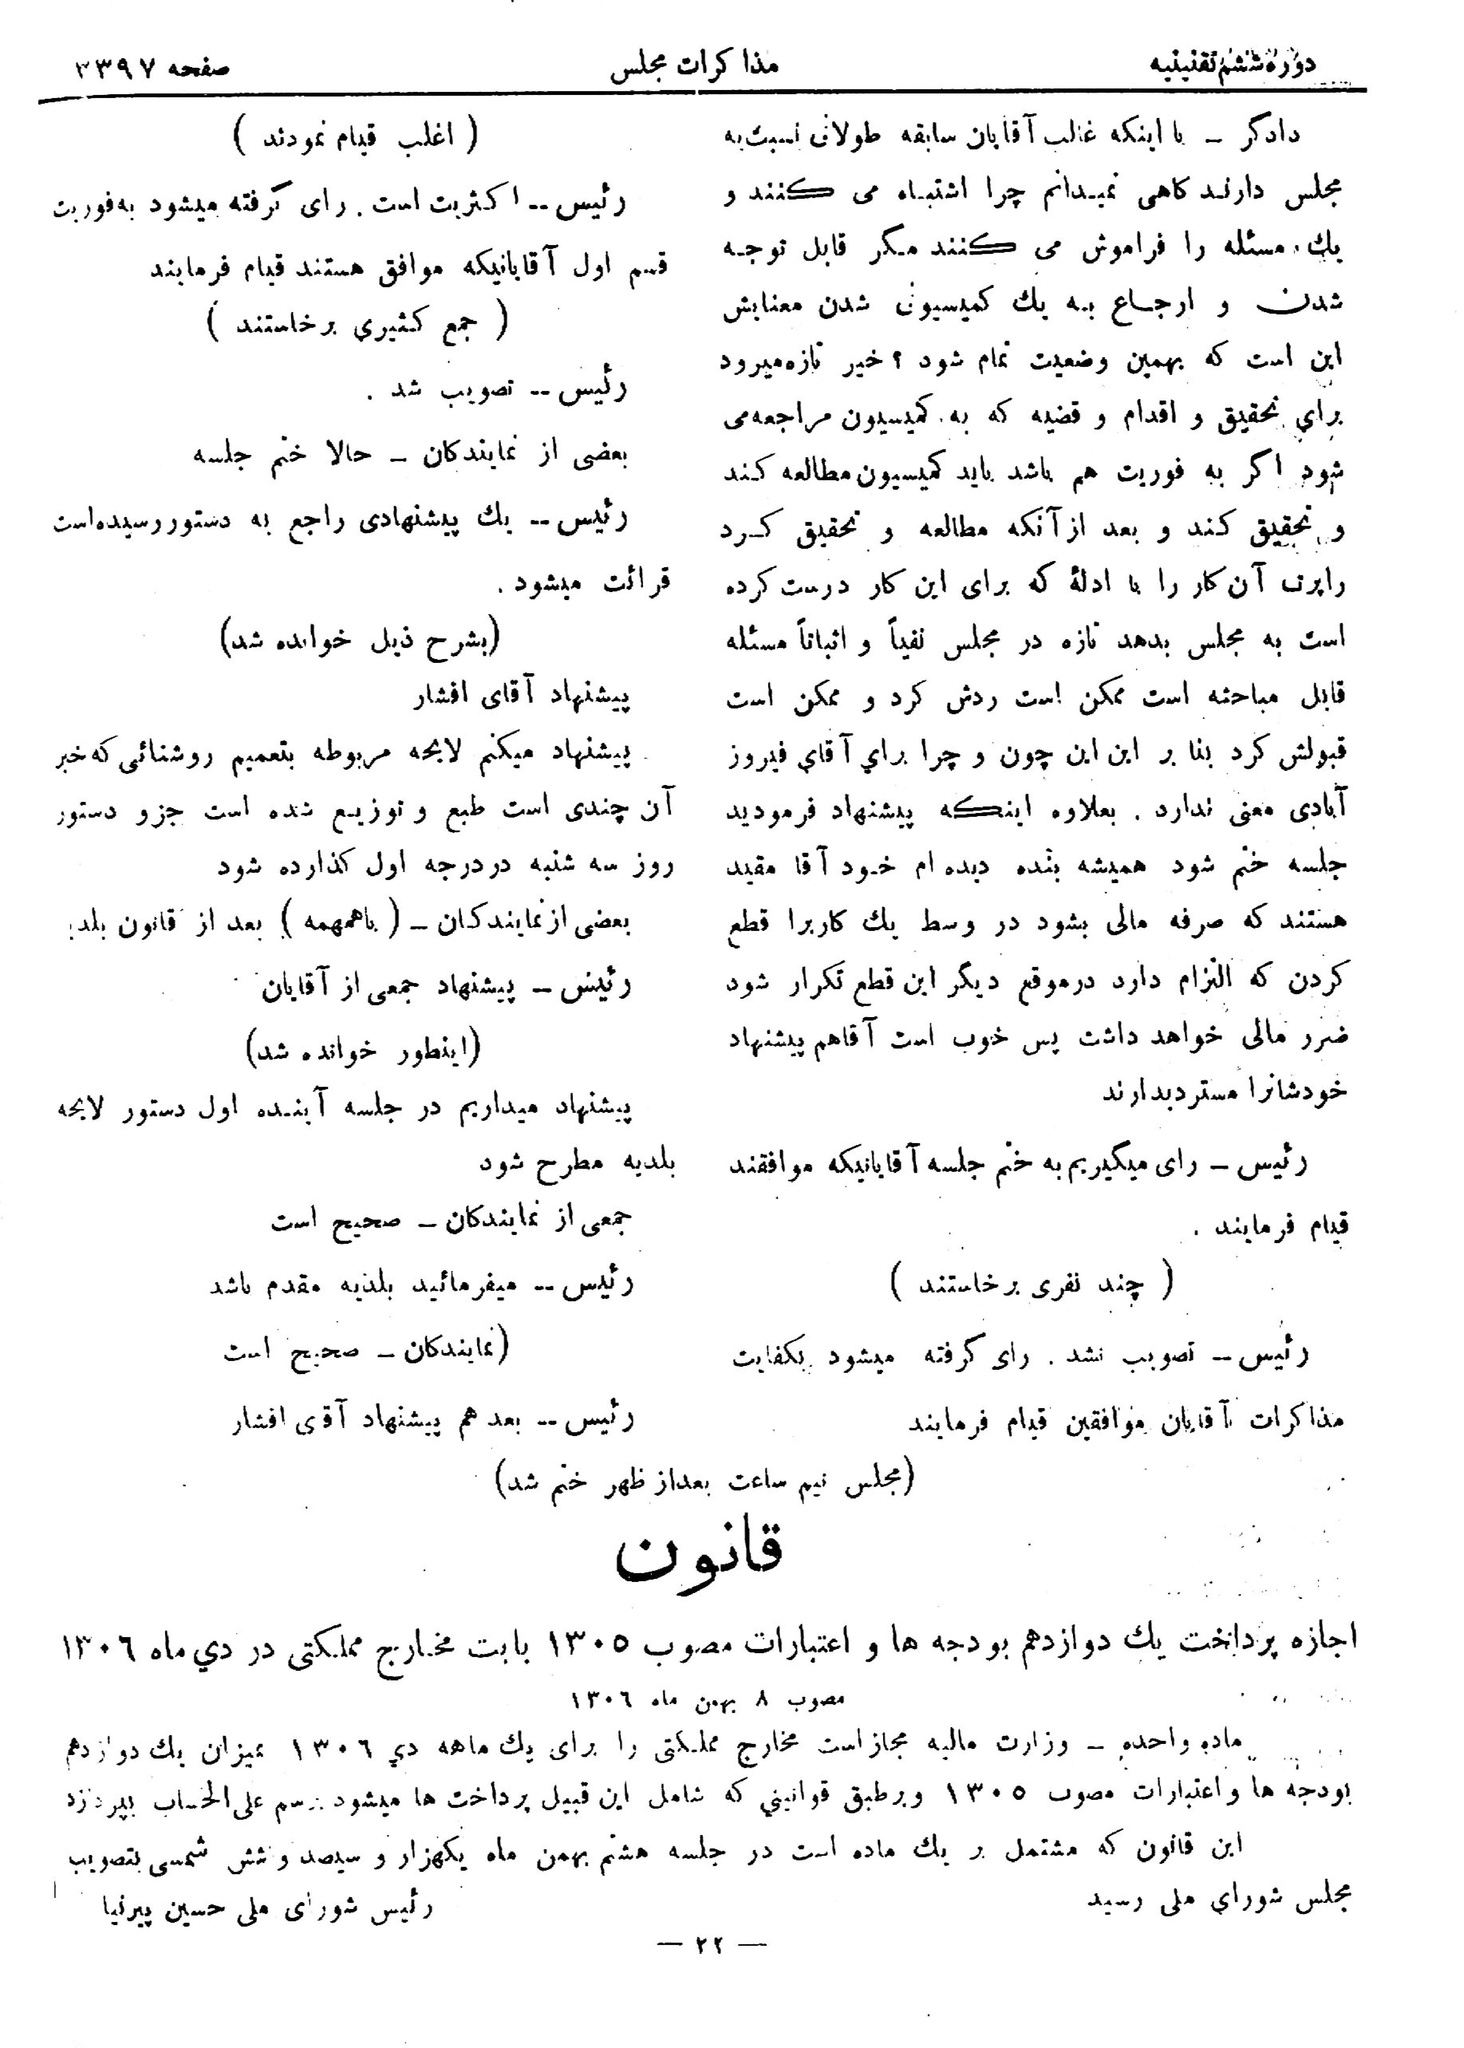 دوره ششم تقنینیه
مذاکرات مجلس
صفحه ۳۳۹۷
دادگر ــ با اینکه غالب آقایان سابقه طولانی نسبت به
مجلس دارند کاهی نمیدانم چرا اشتباه می کنند و
یك مسئله را فراموش می کنند مگر قابل توجه
شدن و ارجاع به یك کمیسیونی شدن معنایش
این است که بهمین وضعیت تمام شود ؟ خیر تازه میرود
براي تحقیق و اقدام و قضیه که به کمیسیون مراجعه می
شود اگر به فوریت هم باشد باید کمیسیون مطالعه کند
و تحقیق کند و بعد از آنکه مطالعه و تحقیق کرد
راپرت آن کار را با ادلهٔ که برای این کار درست کرده
است به مجلس بدهد تازه در مجلس نفیاً و اثباتاً مسئله
قابل مباحثه است ممکن است ردش کرد و ممکن است
قبولش کرد بنا بر این این چون و چرا براي آقاي فیروز
آبادی معنی ندارد . بعلاوه اینکه پیشنهاد فرمودید
جلسه ختم شود همیشه بنده دیده ام خود آقا مقید
هستند که صرفه مالی بشود در وسط یك کاربرا قطع
کردن که التزام دارد درموقع دیگر این قطع تکرار شود
ضرر مالی خواهد داشت پس خوب است آقاهم پیشنهاد
خودشانرا مستردبدارند
رئیس ــ رای میگیریم به ختم جلسه آقایانیکه موافقند
قیام فرمایند .
( چند نفری برخاستند )
رئیس ــ تصویب نشد . رای گرفته میشود بکفایت
مذاکرات آقایان موافقین قیام فرمایند
( اغلب قیام نمودند )
رئیس ــ اکثریت است . رای گرفته میشود به فوریت
قسم اول آقایانیکه موافق هستند قیام فرمایند
( جمع کثیري برخاستند )
رئیس ــ تصویب شد .
بعضی از نمایندکان ــ حالا ختم جلسه
رئیس ــ یك پیشنهادی راجع به دستور رسیده است
قرائت میشود .
(بشرح ذیل خوانده شد)
پیشنهاد آقای افشار
پیشنهاد میکنم لایحه مربوطه بتعمیم روشنائی که خبر
آن چندی است طبع و توزیع شده است جزو دستور
روز سه شنبه دردرجه اول کذارده شود
بعضی از نمایندکان ــ ( باهمهمه ) بعد از قانون بلدیه
رئیس ــ پیشنهاد جمعی از آقایان
(اینطور خوانده شد)
پیشنهاد میداریم در جلسه آینده اول دستور لایحه
بلدیه مطرح شود
جمعی از نمایندکان ــ صحیح است
رئیس ــ میفرمائید بلدیه مقدم باشد
(نمایندکان ــ صحیح است
رئیس ــ بعد هم پیشنهاد آقای افشار
(مجلس نیم ساعت بعداز ظهر ختم شد)
قانون
اجازه پرداخت یك دوازدهم بودجه ها و اعتبارات مصوب ۱۳۰۵ بابت مخارج مملکتی در دي ماه ۱۳۰۶
مصوب ۸ بهمن ماه ۱۳۰۶
ماده واحده ــ وزارت مالیه مجاز است مخارج مملکتی را برای یك ماهه دي ۱۳۰۶ بمیزان یك دوازدهم
بودجه ها و اعتبارات مصوب ۱۳۰۵ و برطبق قوانیني که شامل این قبیل پرداخت ها میشود برسم علی الحساب بپردازد
این قانون که مشتمل بر یك ماده است در جلسه هشتم بهمن ماه یکهزار و سیصد و شش شمسی بتصویب
مجلس شوراي ملی رسید
رئیس شورای ملی حسین پیرنیا
ــ ۲۲ ــ